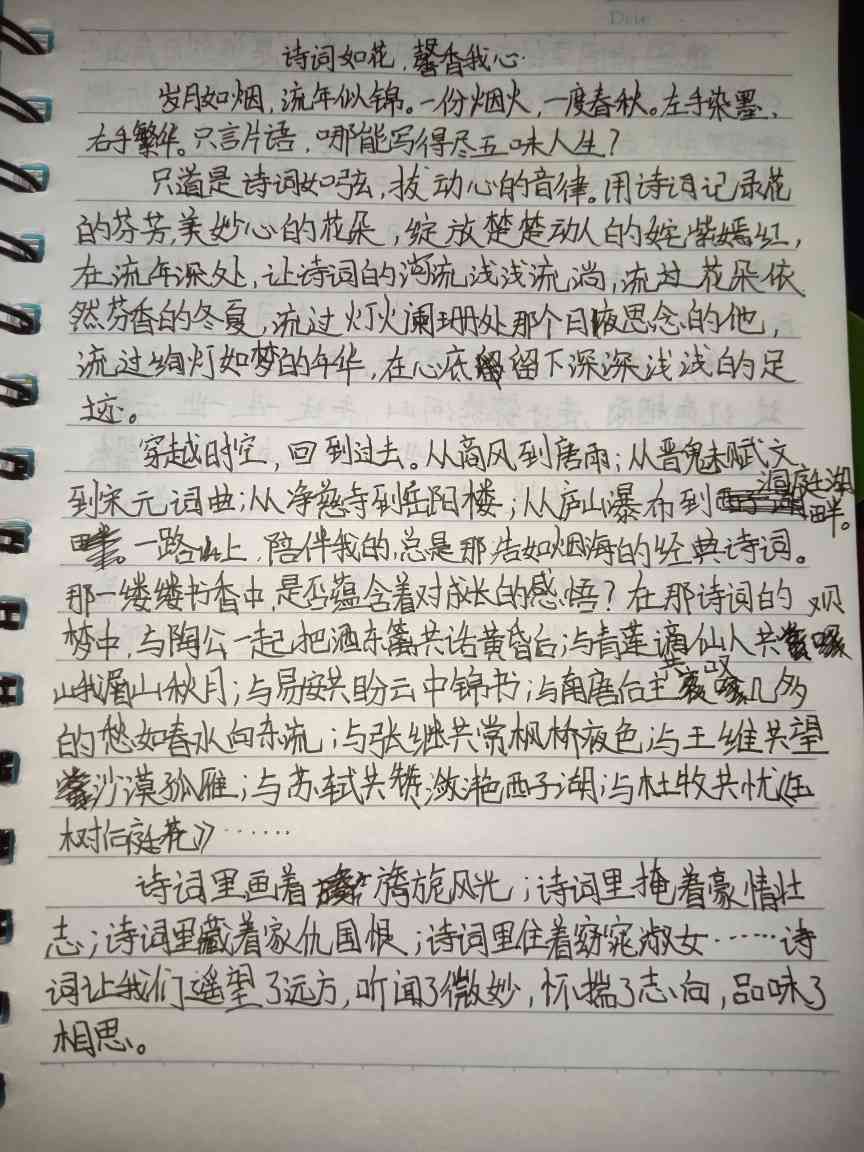 Date
诗词如花，馨香我心
岁月如烟，流年似锦。一份烟火，一度春秋。左手染墨，
右手繁华。只言片语，哪能写得尽五味人生？
只道是诗词如弦，拨动心的音律。用诗词记录花
的芬芳，美妙心的花朵，绽放楚楚动人的姹紫嫣红，
在流年深处，让诗词的河流浅浅流淌，流过花朵依
然芬香的冬夏，流过灯火阑珊处那个日夜思念的他，
流过绚灯如梦的年华，在心底留下深深浅浅的足
迹。
穿越时空，回到过去。从商风到唐雨；从晋魏赋文
到宋元词曲；从净慈寺到岳阳楼；从庐山瀑布到洞庭湖
畔。
一路上，陪伴我的，总是那浩如烟海的经典诗词。
那一缕缕书香中，是否蕴含着对成长的感悟？在那诗词的
梦中，与陶公一起把酒东篱共话黄昏后；与青莲谪仙人共
峨眉山秋月；与易安共盼云中锦书；与南唐后主共叹几多
的愁如春水向东流；与张继共赏枫桥夜色；与王维共望
沙漠孤雁；与苏轼共赞潋滟西子湖；与杜牧共忧《玉
树后庭花》……
诗词里画着旖旎风光；诗词里掩着豪情壮
志；诗词里藏着家仇国恨；诗词里住着窈窕淑女……诗
词让我们遥望了远方，听闻了微妙，怀揣了志向，品味了
相思。